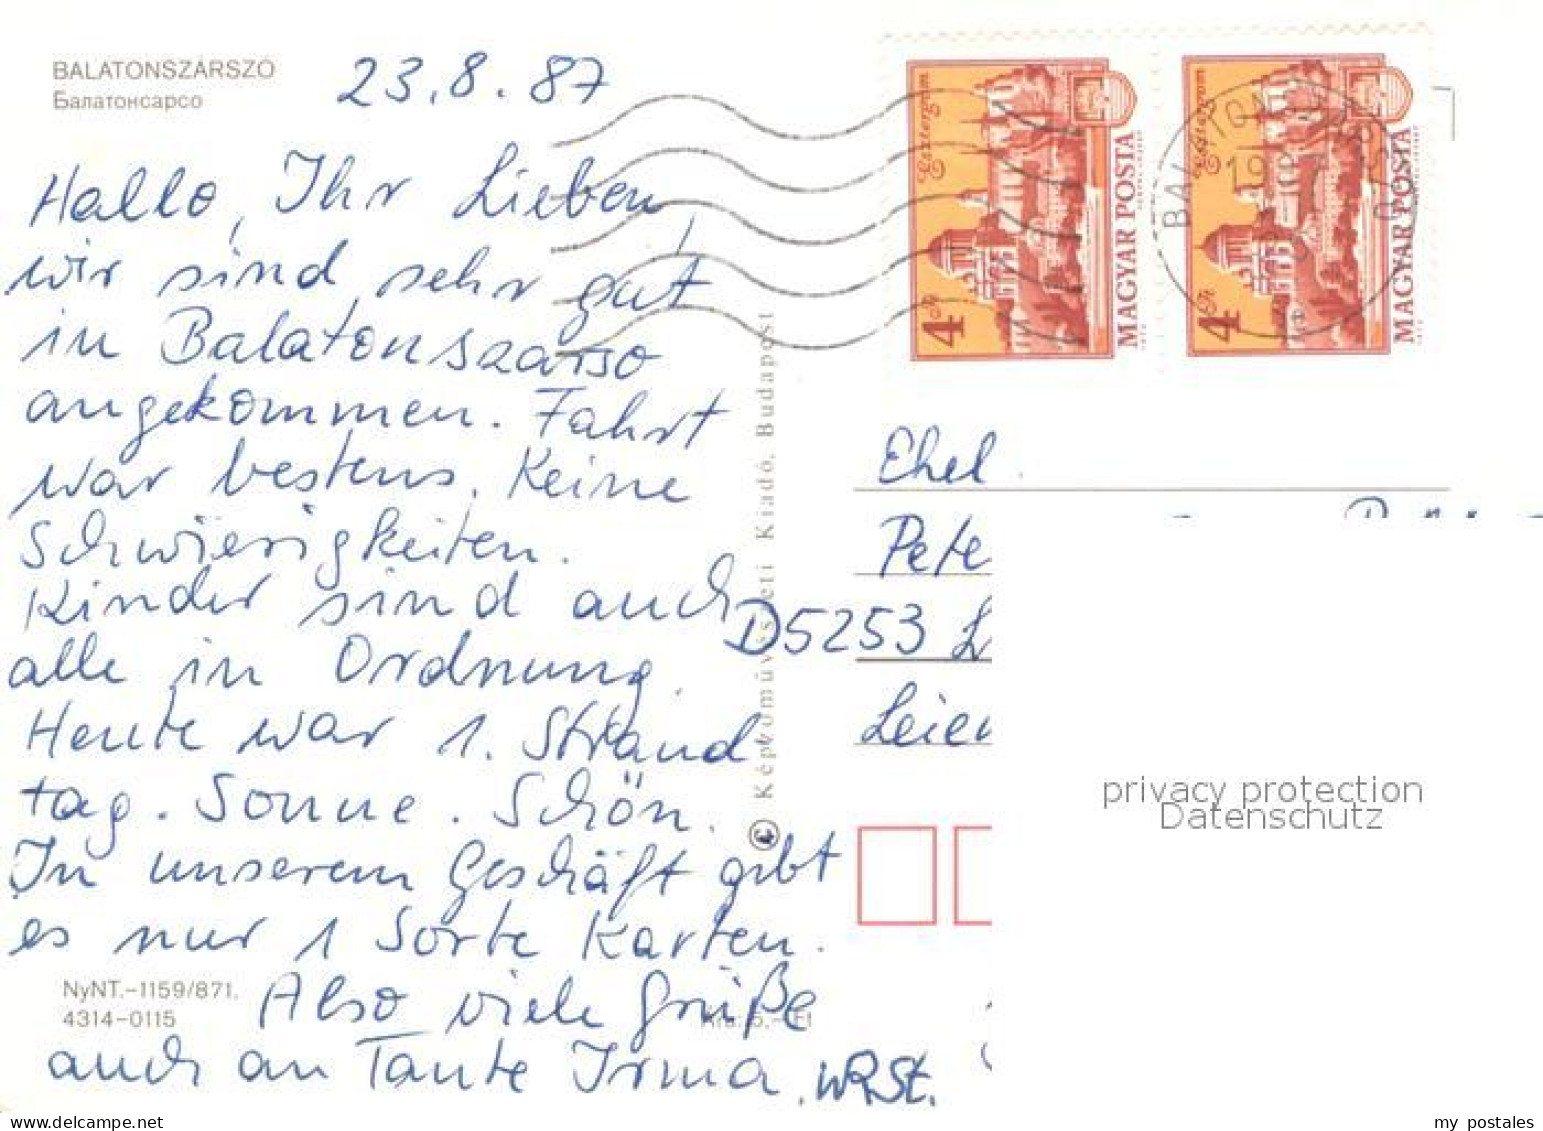 BALATONSZÁRSZO
Балатонсарсо
23.8.87
Hallo, Ihr Lieben,
wir sind sehr gut
in Balatonszarso
angekommen. Fahrt
war bestens. Keine
Schwierigkeiten.
Kinder sind auch
alle in Ordnung.
Heute war 1. Strand
tag. Sonne. Schön.
In unserem Geschäft gibt
es nur 1 Sorte Karten.
Also viele Grüße
auch an Tante Irma.
NyNT.-1159/871.
4314-0115
© Képzőművészeti Kiadó, Budapest
Esztergom
4 Ft
MAGYAR POSTA
Esztergom
4 Ft
MAGYAR POSTA
Ehel.
Pete
D5253 L
Leie
privacy protection
Datenschutz
my postales